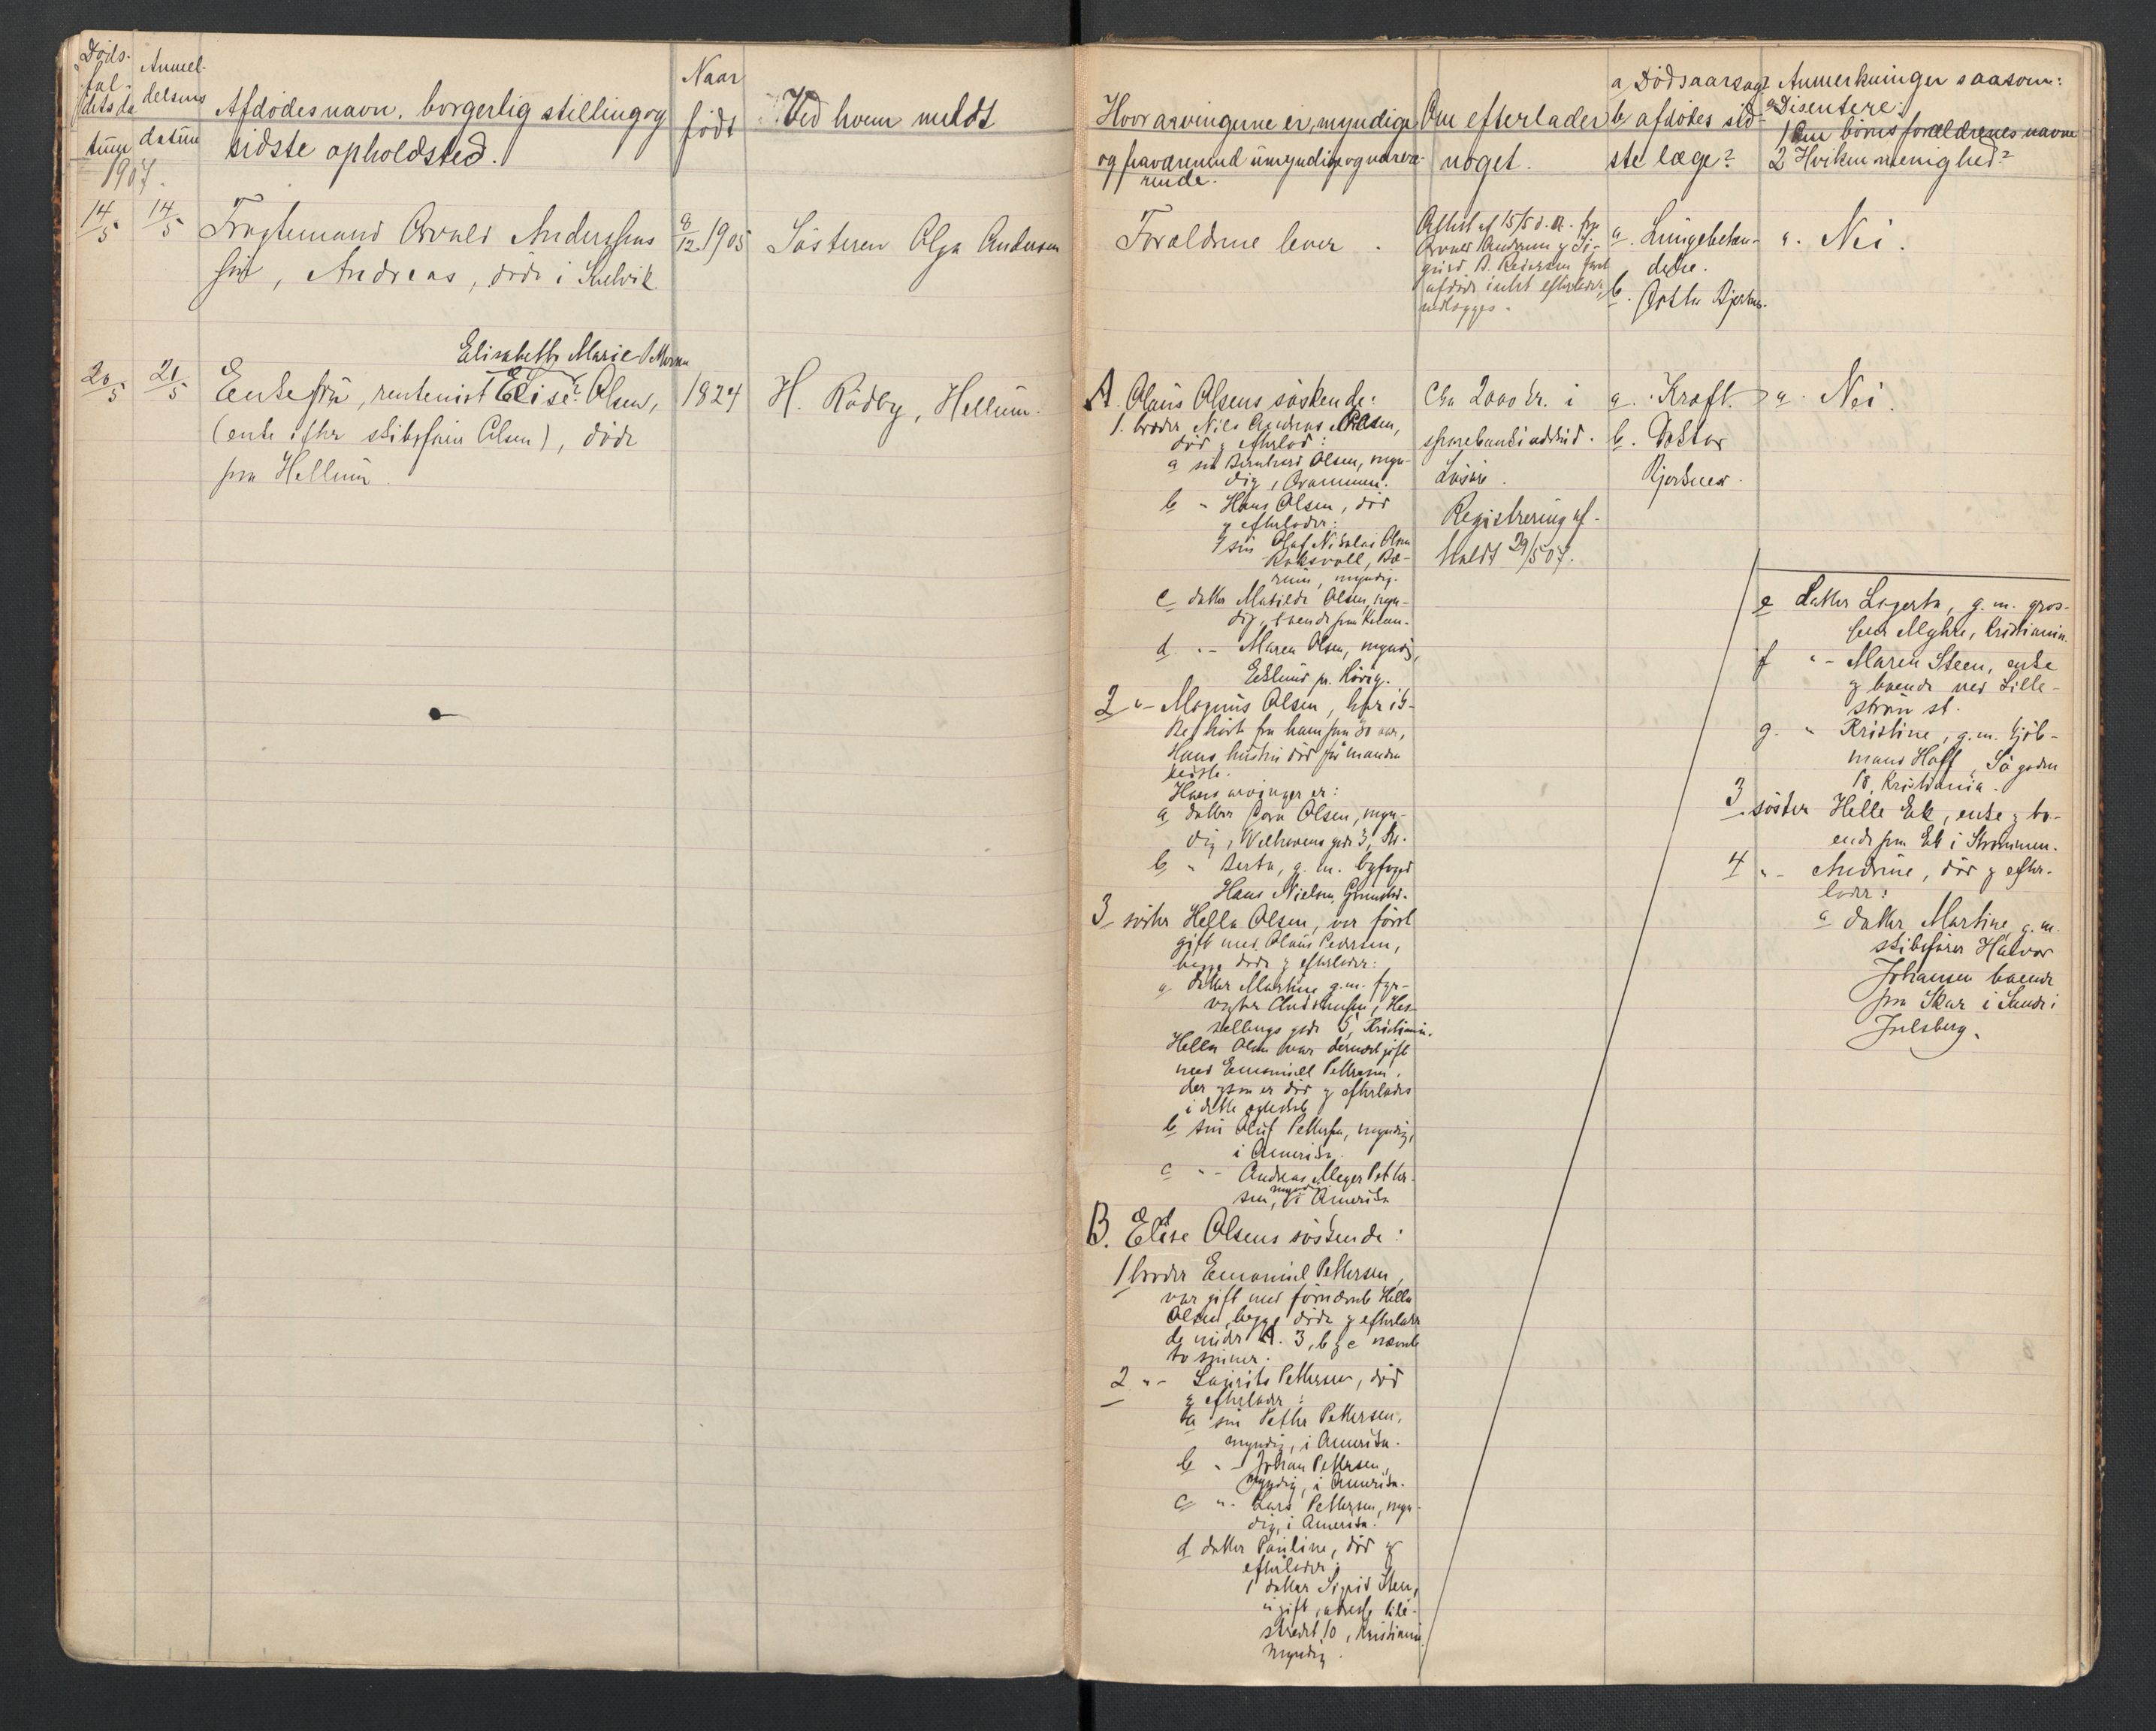 Døds-
fal-
dets da
tum
Anmel-
delsens
datum
Afdødes navn, borgerlig stilling og
sidste opholdsted.
Naar
født
Ved hvem meldt
1907.
14/5
14/5
Andersens
søn, Andreas, døde i
8/12 1905
Søsteren Olga Andersen
Elisabeth Marie
20/5
21/5
Enkefru, rentenist Elise? Olsen,
(enke efter skibsfører Olsen), døde
paa Hellum
1824
H. Rødby, Hellum.
Hvor arvingerne er, myndige
og fraværende umyndige og nærvæ-
rende.
Om efterlader
noget.
a Dødsaarsag?
b afdødes sid-
ste læge?
Anmerkninger saasom:
a Disentere:
1 Om børns forældrenes navne
2 Hvilken menighed?
Forældrene lever.
Attest af 15/5 d. a. fra
Andersen g
afdøde intet efterlader,
vedlægges.
a. Lungebetæn-
delse.
b. Bjerknes.
a. Nei.
A. Olaus Olsens søskende:
1. broder Nils Andreas Olsen,
død g efterlod:
a søn Bernhard Olsen, myn-
dig,
b "- Hans Olsen, død
g efterlader:
1 søn Olaf Nikolai Olsen
Bæ-
rum, myndig.
c datter Matilde Olsen, myn-
dig, boende paa
d "- Maren Olsen, myndig,
Eklund pr.
2 "- Magnus Olsen, har ik-
ke hørt fra ham paa 30 aar,
Hans hustru død
Hans arvinger er:
a datter Olsen, myn-
dig, Welhavens gade 3, Kr.
b " Berta, g. m. byfoged
Hans Nielsen, Grimstad.
3 søster Hella Olsen, var først
gift med Olaus Pedersen,
begge døde g efterlader:
a datter Martine g. m. fyr-
vogter
gade 5, Kristiania.
Hella Olsen var dernæst gift
med Emanuell Pettersen,
der ogsaa er død g efterlader
i dette egteskab
b søn Oluf Pettersen, myndig,
i Amerika.
c "- Andreas Meyer Petter-
sen, myndig i Amerika
B. Elise Olsens søskende:
1 broder Emanuel Pettersen,
var gift med fornævnte Hella
Olsen, begge døde g efterlader
de under A. 3, b g c nævnte
to sønner.
2 "- Laurits Pettersen, død
g efterlader:
a søn Petter Pettersen,
myndig, i Amerika.
b "- Johan Pettersen,
myndig, i Amerika.
c "- Lars Pettersen, myn-
dig, i Amerika.
d datter Pauline, død g
efterlader:
1 datter Sigrid Steen,
ugift, adresse Pile-
strædet 10, Kristiania,
myndig.
Cha 2000 kr. i
sparebankindskud.
Løsøre.
Registrering af-
holdt 29/5 07.
a. Kræft.
b. Doktor
Bjerknes.
a. Nei.
e datter Lagerta, g. m. gros-
serer Myhre, Kristiania.
f "- Maren Steen, enke
g boende ved Lille-
strøm st.
g. " Kristine, g. m. kjøb-
mand Hoff,
18, Kristiania.
3 søster Helle Ek, enke g bo-
ende paa Ek i Strømmen.
4 "- Andrine, død g efter-
lader:
a datter Martine, g. m.
skibsfører Halvor
Johansen boende
paa Skar i Sande i
Jarlsberg.